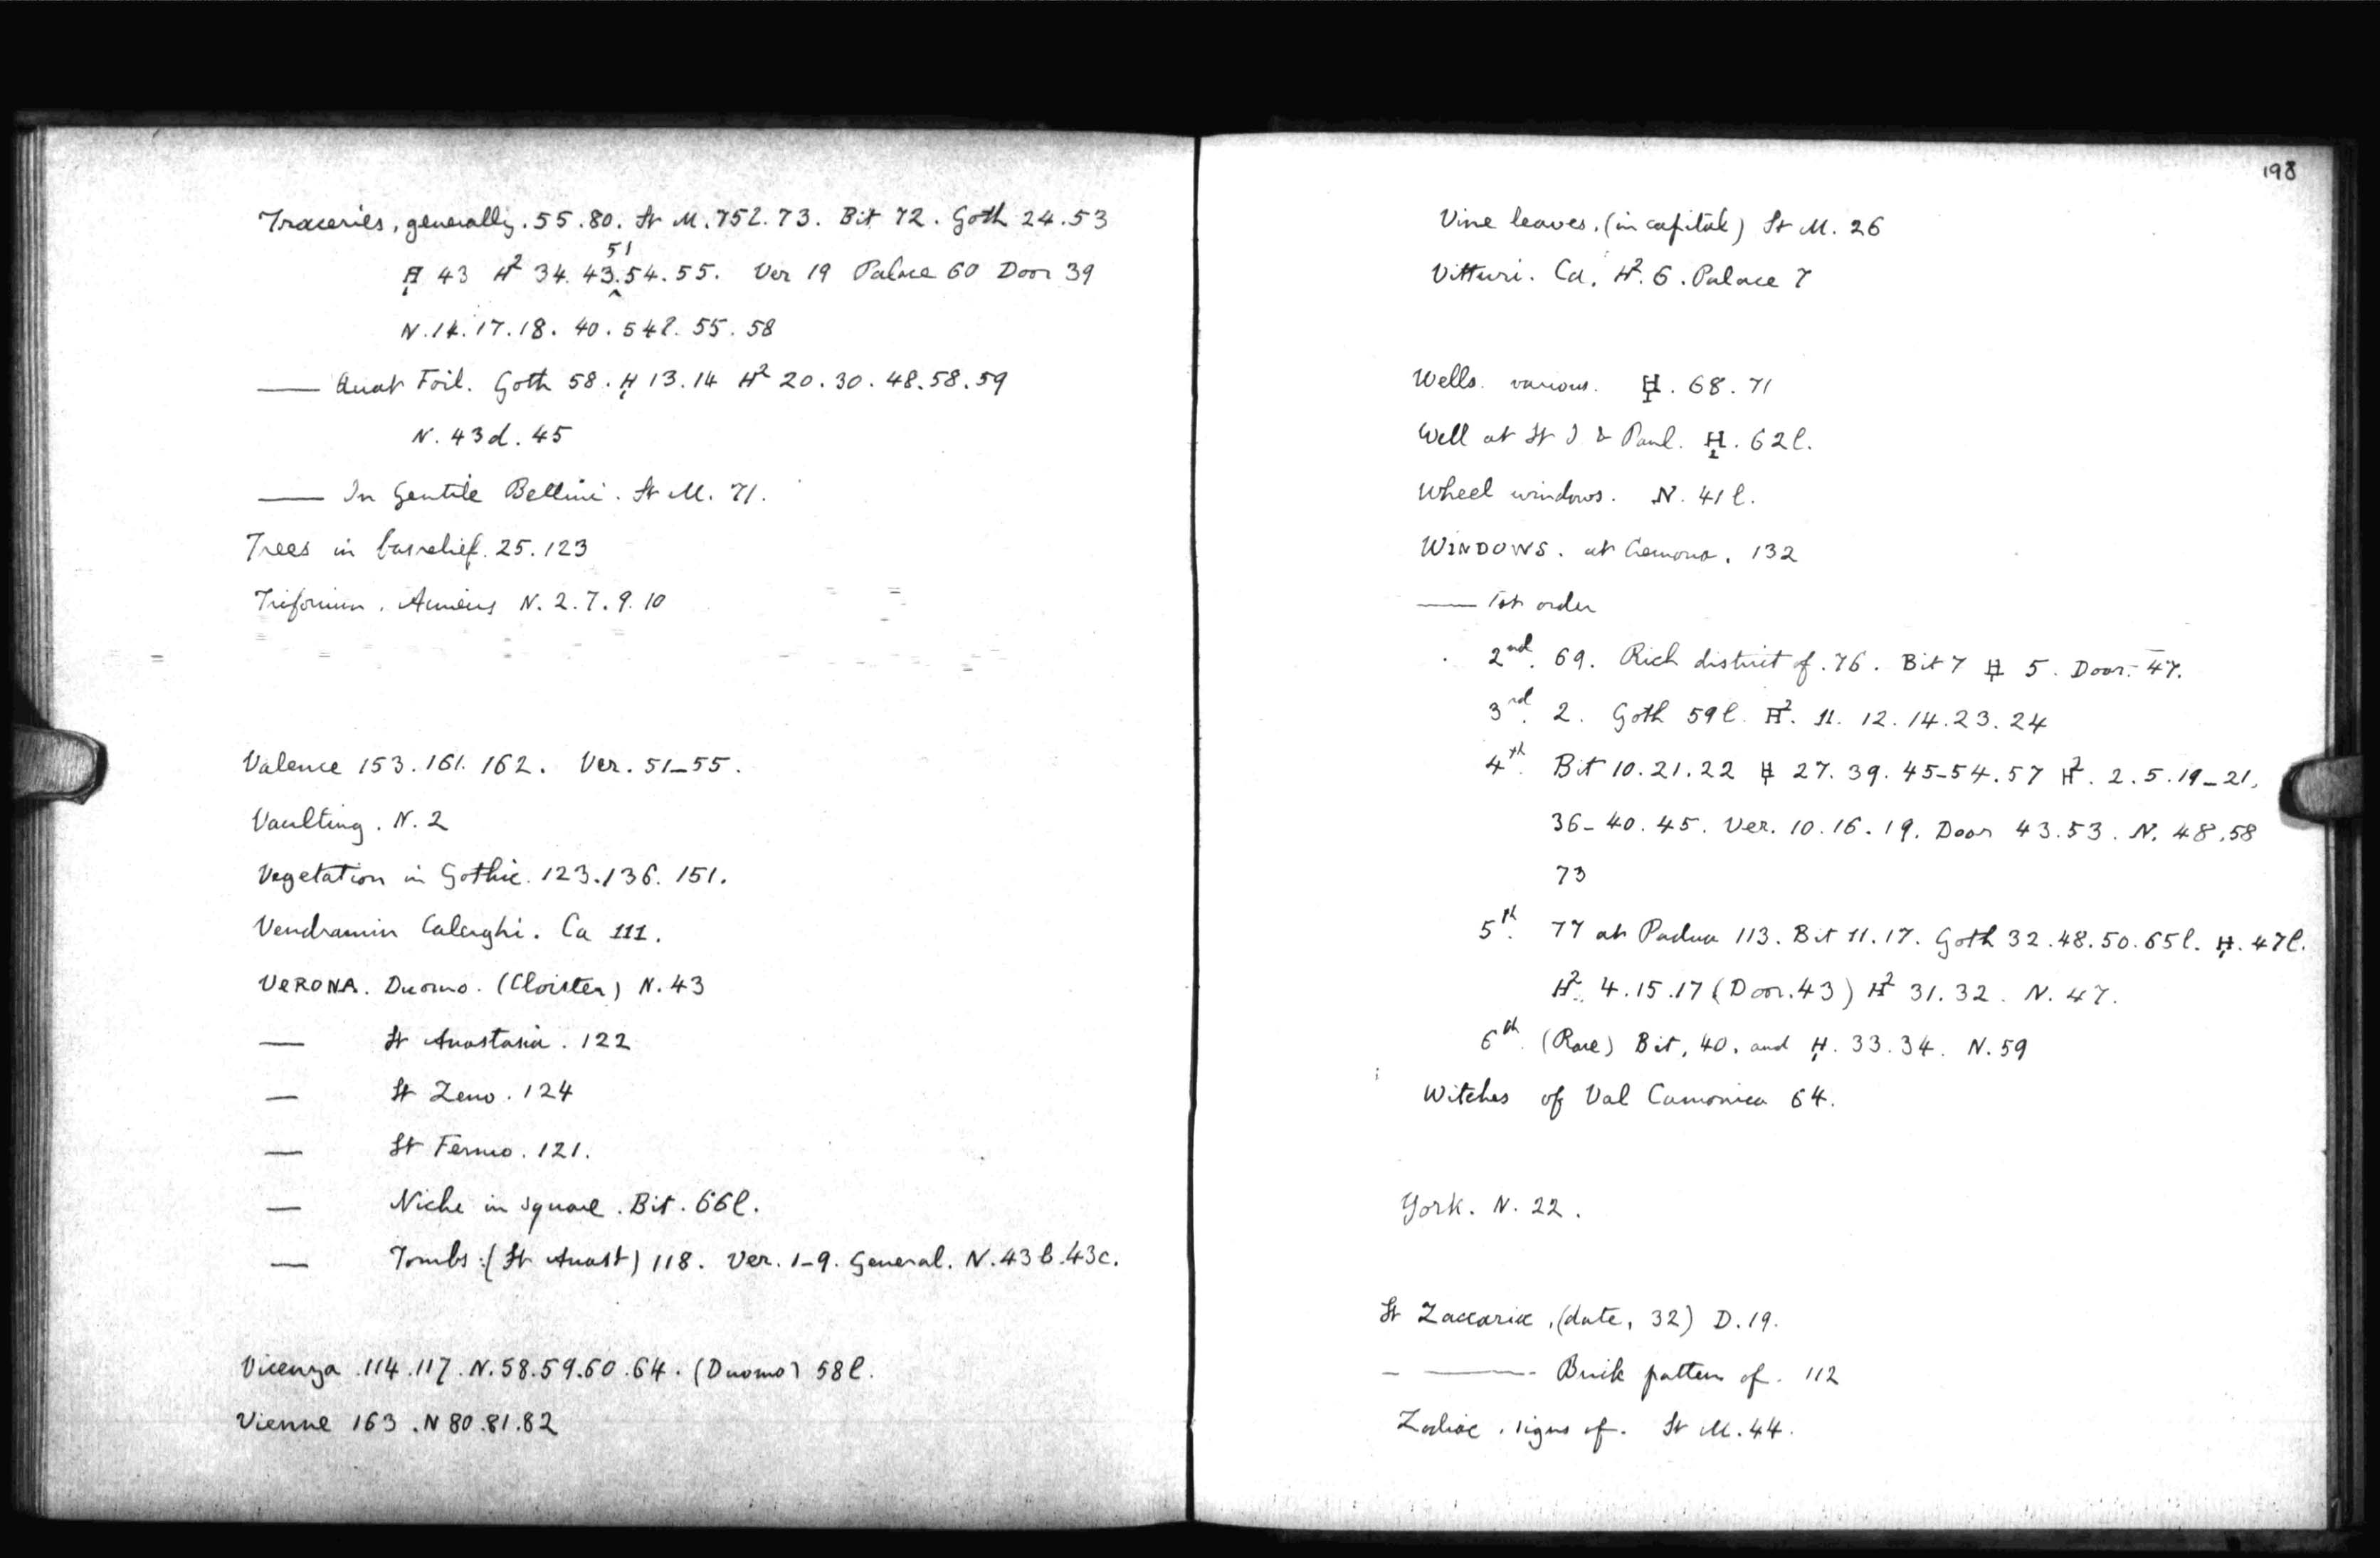 Traceries, generally. 55. 80. St M. 75l. 73. Bit 72. Goth 24. 53
51
H 43 H2 34. 43. 54. 55. Ver 19 Palace 60 Door 39
N. 14. 17. 18. 40. 54l. 55. 58
—— Quat Foil. Goth 58. H 13. 14 H2 20. 30. 48. 58. 59
N. 43d. 45
—— In Gentile Bellini. St M. 71.
Trees in basrelief. 25. 123
Triforium. Amiens N. 2. 7. 9. 10
Valence 153. 161. 162. Ver. 51–55.
Vaulting. N. 2
Vegetation in Gothic. 123. 136. 151.
Vendramin Calerghi. Ca 111.
VERONA. Duomo. (Cloister) N. 43
— St Anastasia. 122
— St Zeno. 124
— St Fermo. 121.
— Niche in square. Bit. 66l.
— Tombs: (St Anast) 118. Ver. 1–9. General. N. 43b. 43c.
Vicenza. 114. 117. N. 58. 59. 60. 64. (Duomo) 58l.
Vienne 163. N 80. 81. 82
198
Vine leaves, (in capital) St M. 26
Vitturi. Ca. H2. 6. Palace 7
Wells. various. H. 68. 71
Well at St J & Paul. H. 62l.
Wheel windows. N. 41l.
WINDOWS. at Cremona. 132
—— 1st order
2nd. 69. Rich district of. 76. Bit 7 H 5. Door. 47.
3rd. 2. Goth 59l. H2. 11. 12. 14. 23. 24
4th. Bit 10. 21. 22 H 27. 39. 45–54. 57 H2. 2. 5. 19–21.
36–40. 45. Ver. 10. 16. 19. Door 43. 53. N. 48. 58
73
5th. 77 at Padua 113. Bit 11. 17. Goth 32. 48. 50. 65l. H. 47l.
H2. 4. 15. 17 (Door. 43) H2 31. 32. N. 47.
6th. (Rare) Bit. 40. and H. 33. 34. N. 59
Witches of Val Camonica 64.
York. N. 22.
St Zaccaria, (date, 32) D. 19.
– ——— Brick pattern of. 112
Zodiac, signs of. St M. 44.